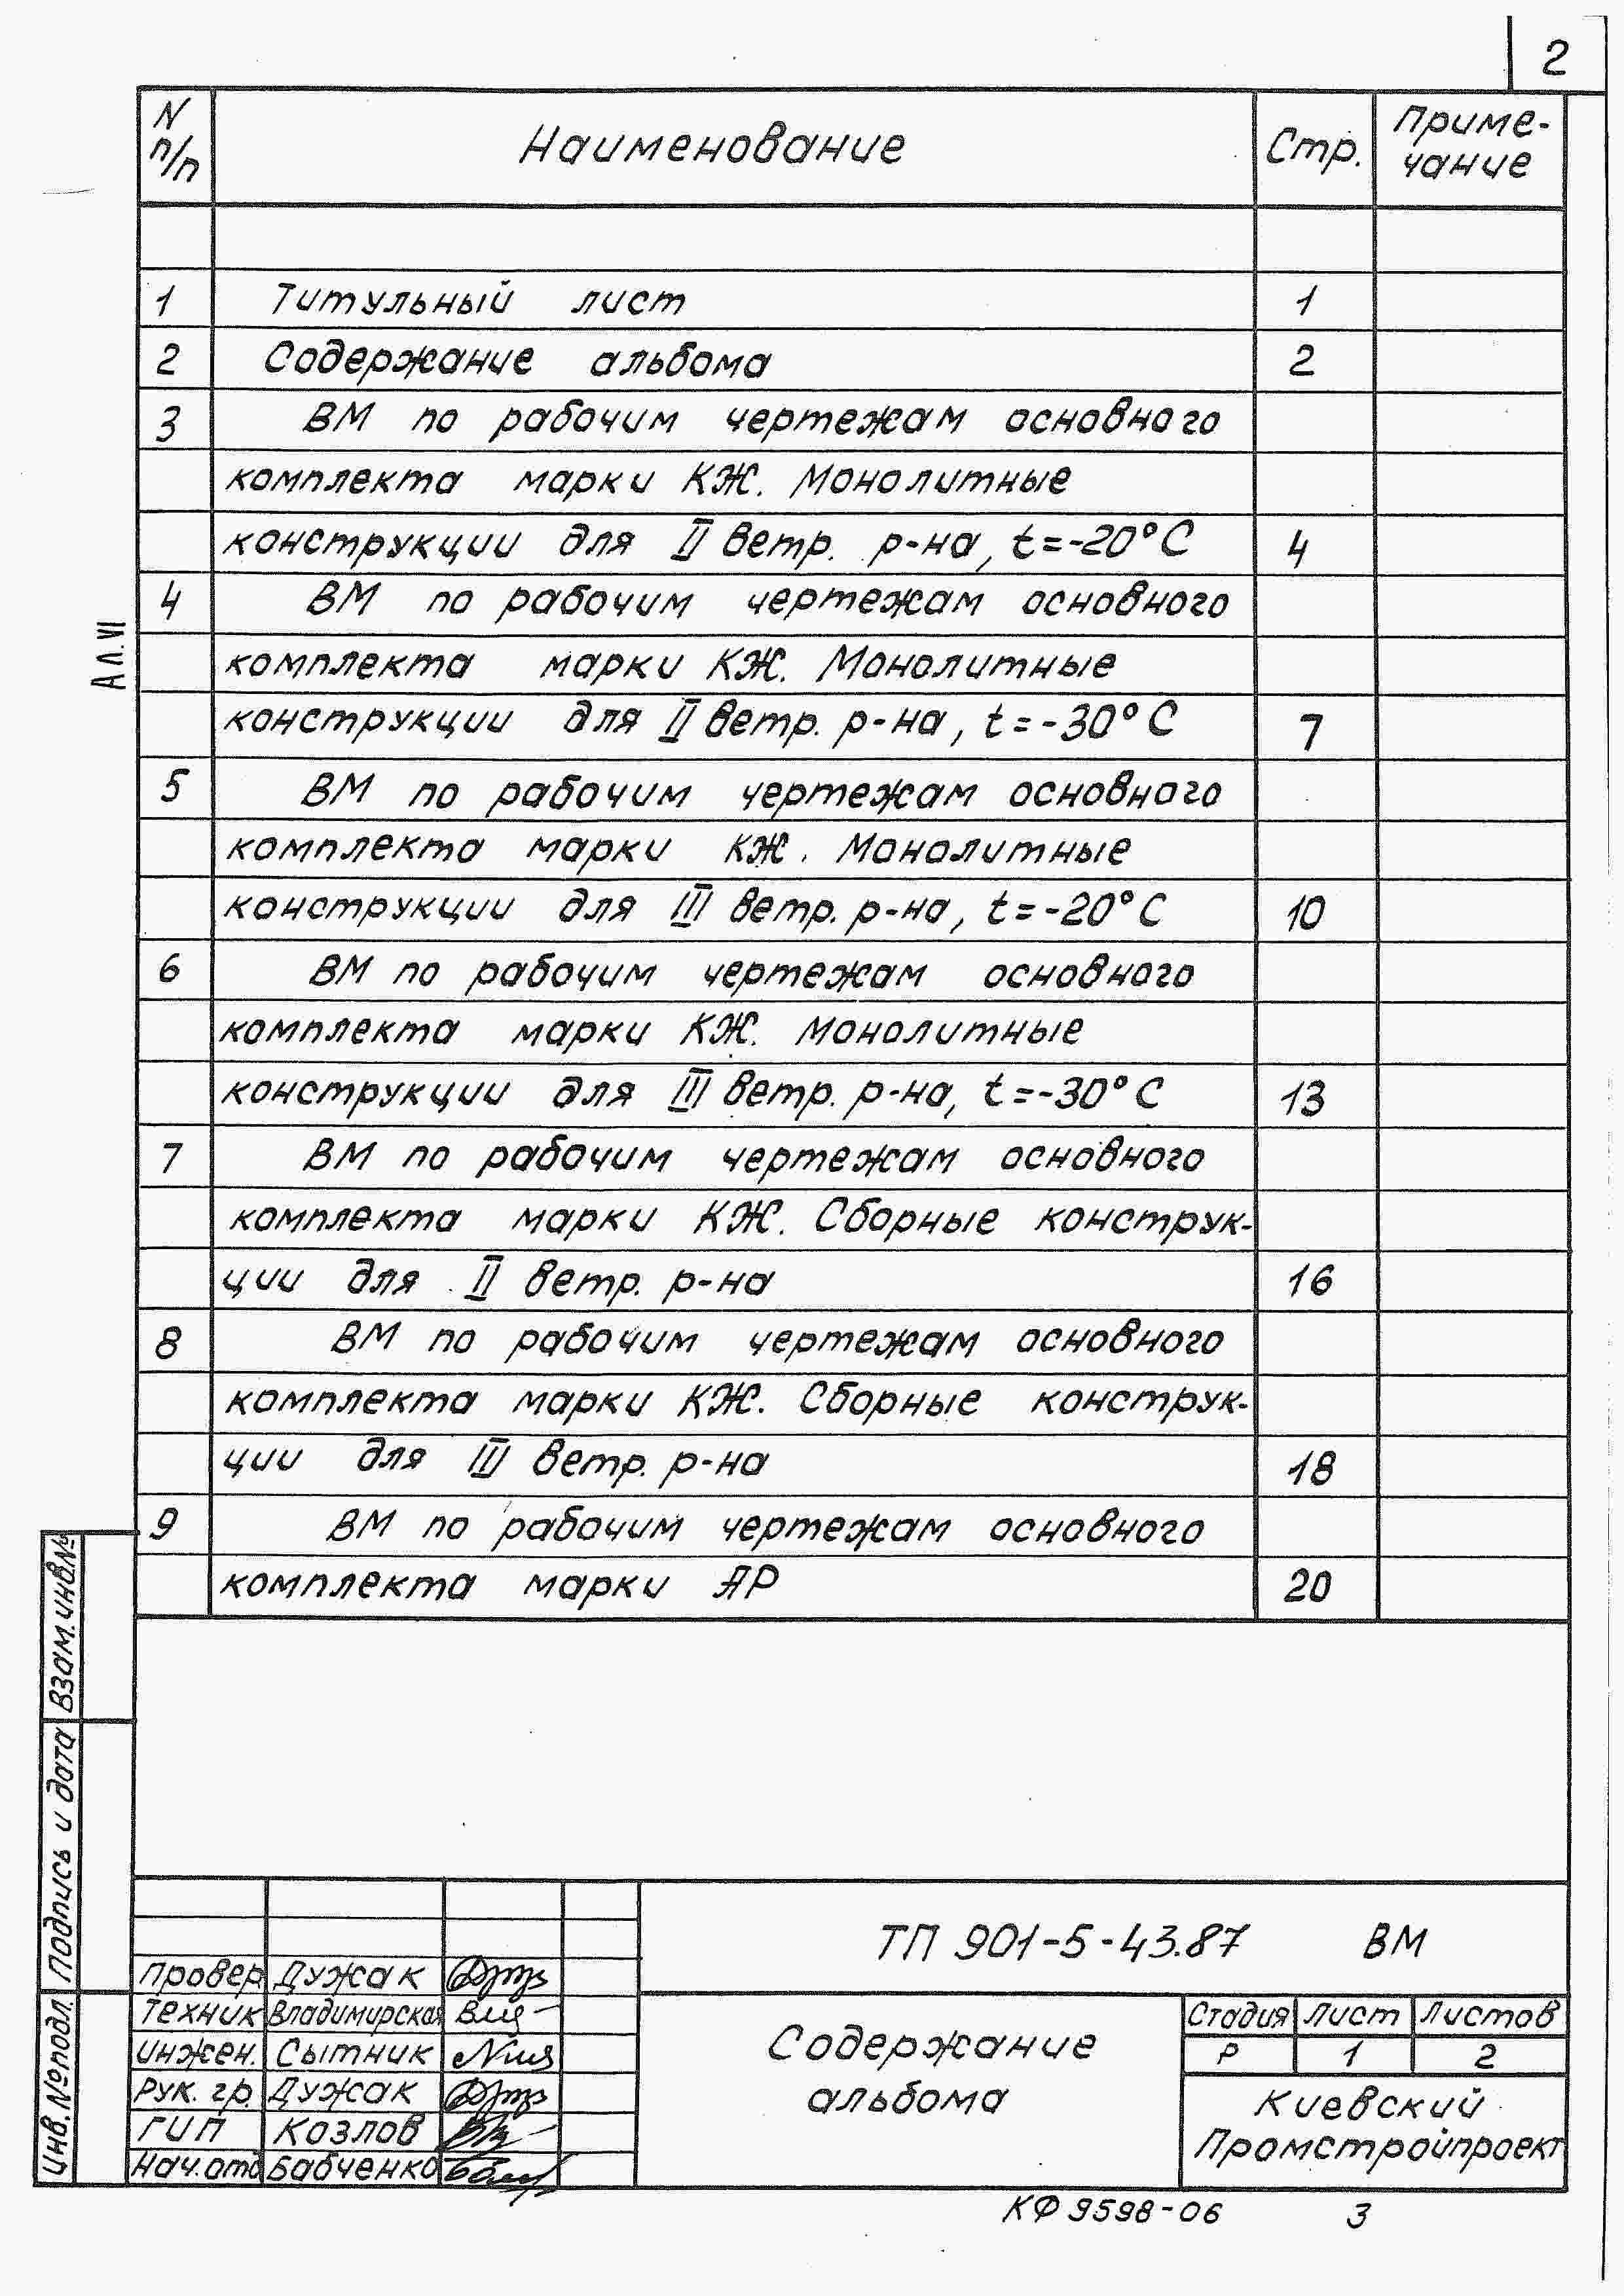 2
N п/п Наименование Стр. Приме-
чание
1 Титульный лист 1
2 Содержание альбома 2
3 ВМ по рабочим чертежам основного
комплекта марки КЖ. Монолитные
конструкции для II ветр. р-на, t=-20°С 4
4 ВМ по рабочим чертежам основного
комплекта марки КЖ. Монолитные
конструкции для II ветр. р-на, t=-30°С 7
5 ВМ по рабочим чертежам основного
комплекта марки КЖ. Монолитные
конструкции для III ветр. р-на, t=-20°С 10
6 ВМ по рабочим чертежам основного
комплекта марки КЖ. Монолитные
конструкции для III ветр. р-на, t=-30°С 13
7 ВМ по рабочим чертежам основного
комплекта марки КЖ. Сборные конструк-
ции для II ветр. р-на 16
8 ВМ по рабочим чертежам основного
комплекта марки КЖ. Сборные конструк-
ции для III ветр. р-на 18
9 ВМ по рабочим чертежам основного
комплекта марки АР 20
Ал. VI
Взам. инв№
Подпись и дата
Инв. №подл.
ТП 901-5-43.87 ВМ
Провер Дужак
Техник Владимирская
Инжен. Сытник
Рук. гр. Дужак
ГИП Козлов
Нач. отд Бабченко
Содержание
альбома
Стадия Лист Листов
Р 1 2
Киевский
Промстройпроект
КФ 9598-06 3